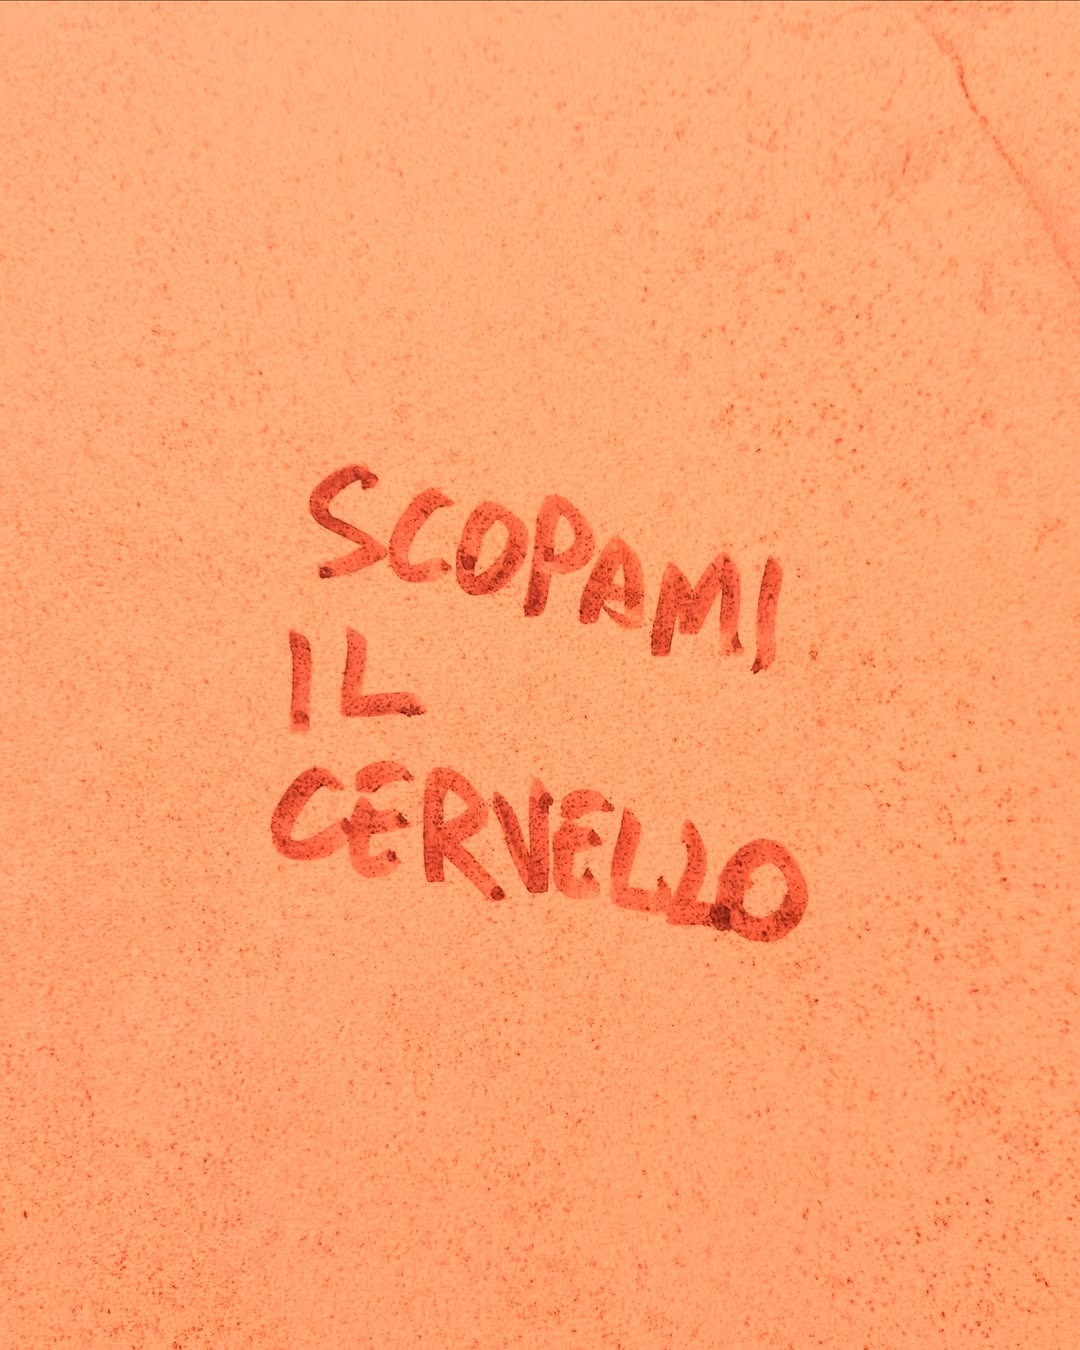 SCOPAMI
IL
CERVELLO